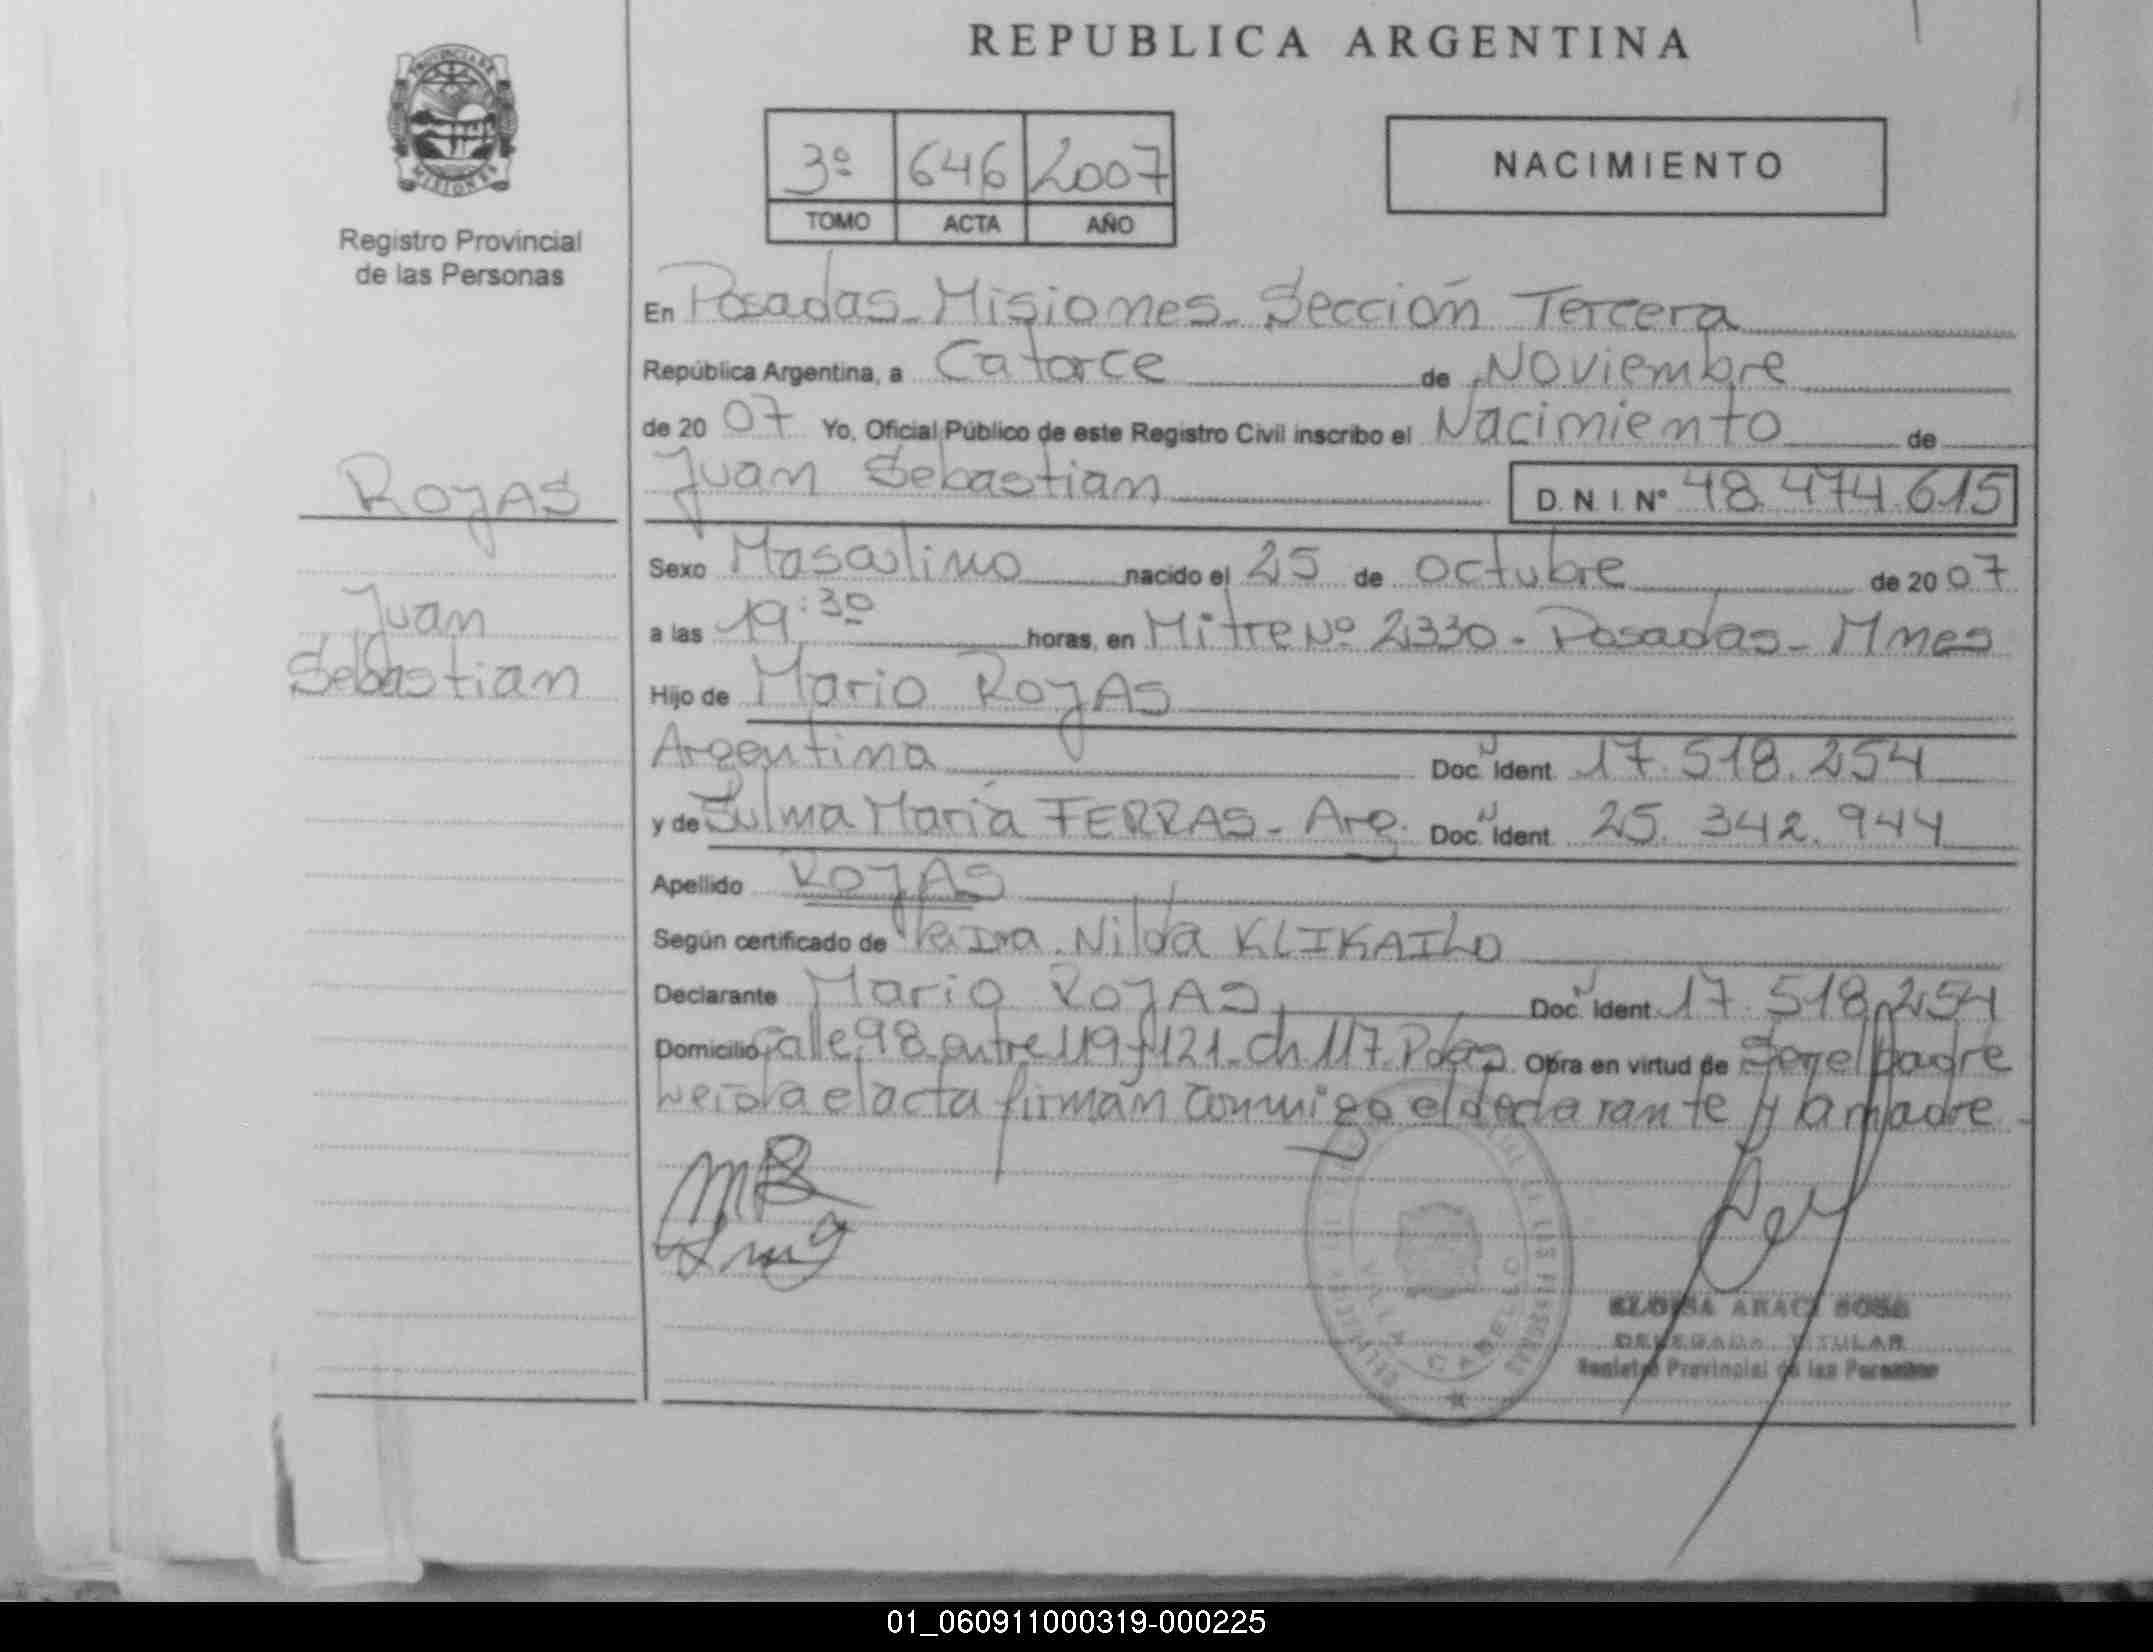 PROVINCIA DE
MISIONES
Registro Provincial
de las Personas
REPUBLICA ARGENTINA
3º 646 2007
TOMO ACTA AÑO
NACIMIENTO
En Posadas - Misiones - Sección Tercera
República Argentina, a Catorce de Noviembre
de 20 07 Yo, Oficial Público de este Registro Civil inscribo el Nacimiento de
ROJAS
Juan Sebastian D. N. I. Nº 48.474.615
Sexo Masculino nacido el 25 de octubre de 20 07
Juan
Sebastian
a las 19:30 horas, en Mitre Nº 2330 - Posadas - Mnes
Hijo de Mario ROJAS
Argentina Doc. Ident. 17.518.254
y de Sulma María FERRAS - Arg. Doc. Ident. 25.342.944
Apellido ROJAS
Según certificado de la Dra. Nilda KLIKAILO
Declarante Mario ROJAS Doc. Ident. 17.518.254
Domicilio Calle 98 entre 119 y 121 - Ch 117 Pdas. Obra en virtud de Ser el padre
Leída el acta firman conmigo el declarante y la madre -
VILLA CABELLO
ELOISA ARACI SOSA
DELEGADA TITULAR
Registro Provincial de las Personas
01_060911000319-000225